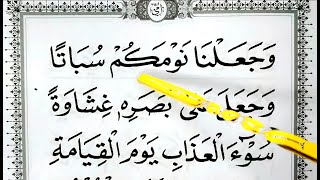 وَجَعَلْنَا نَوْمَكُمْ سُبَاتًا
وَجَعَلَ بَصَرِهٖ غِشَاوَةً
سُوْٓءَ الْعَذَابِ يَوْمَ الْقِيَامَةِ